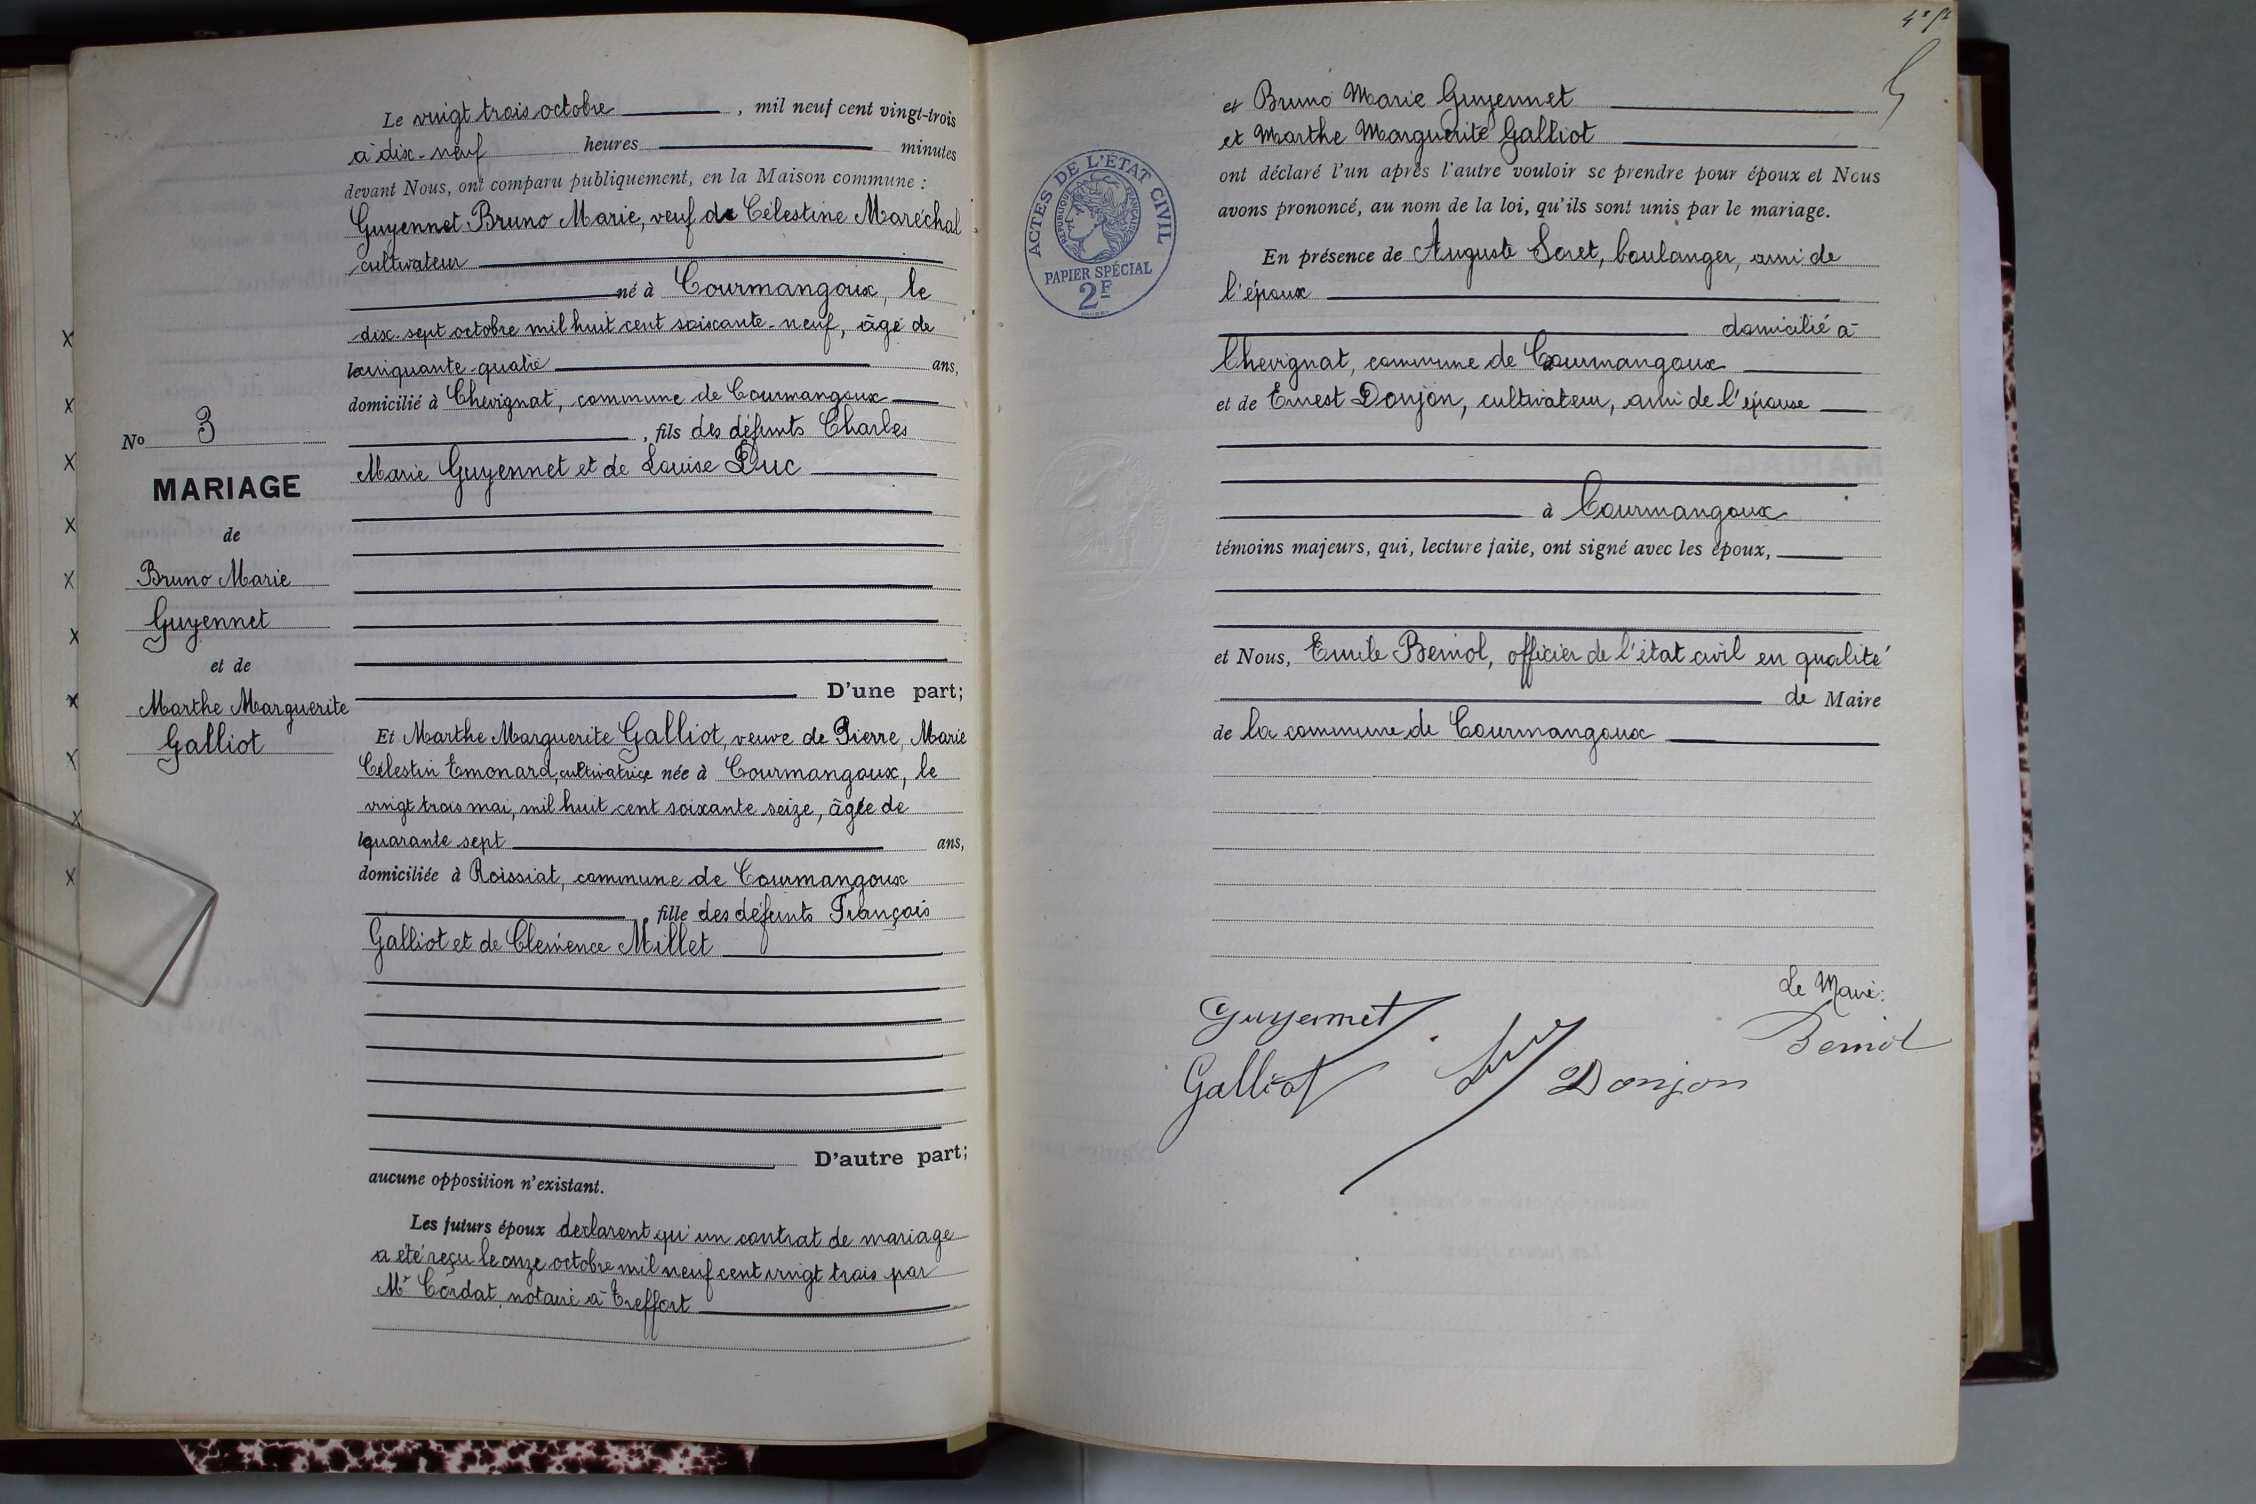 Le vingt trois octobre, mil neuf cent vingt-trois
à dix-neuf heures minutes
devant Nous, ont comparu publiquement, en la Maison commune :
Guyennet Bruno Marie, veuf de Célestine Maréchal
cultivateur
né à Courmangoux, le
dix-sept octobre mil huit cent soixante-neuf, âgé de
cinquante-quatre ans,
domicilié à Chevignat, commune de Courmangoux
, fils des défunts Charles
Marie Guyennet et de Louise Duc
No 3
MARIAGE
de
Bruno Marie
Guyennet
et de
Marthe Marguerite
Galliot
D'une part;
Et Marthe Marguerite Galliot, veuve de Pierre, Marie
Célestin Emonard, cultivatrice née à Courmangoux, le
vingt trois mai, mil huit cent soixante seize, âgée de
quarante sept ans,
domiciliée à Roissiat, commune de Courmangoux
, fille des défunts François
Galliot et de Clémence Millet
D'autre part;
aucune opposition n'existant.
Les futurs époux déclarent qu'un contrat de mariage
a été reçu le onze octobre mil neuf cent vingt trois par
Mr Cordat, notaire à Treffort
et Bruno Marie Guyennet
et Marthe Marguerite Galliot
ont déclaré l'un après l'autre vouloir se prendre pour époux et Nous
avons prononcé, au nom de la loi, qu'ils sont unis par le mariage.
ACTES DE L'ÉTAT CIVIL
RÉPUBLIQUE FRANÇAISE
PAPIER SPÉCIAL
2F
En présence de Auguste Soret, boulanger, ami de
l'époux
domicilié à
Chevignat, commune de Courmangoux
et de Ernest Donjon, cultivateur, ami de l'épouse
à Courmangoux
témoins majeurs, qui, lecture faite, ont signé avec les époux,
et Nous, Emile Berniol, officier de l'état civil en qualité
de Maire
de la commune de Courmangoux
Le Maire:
Guyennet
Berniol
Galliot
Donjon